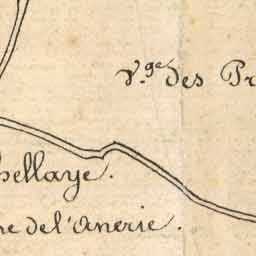 V.ge des Pr
hellaye.
ne de l'anerie.